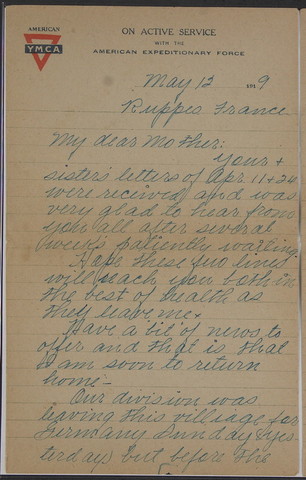 AMERICAN
YMCA
ON ACTIVE SERVICE
WITH THE
AMERICAN EXPEDITIONARY FORCE
May 12 1919
Ruppes France
My dear Mother:
Your +
sister's letters of Apr. 11 + 24
were received and was
very glad to hear from
you all after several
weeks patiently waiting.
Hope these few lines
will reach you both in
the best of health as
they leave me.
Have a bit of news to
offer and that is that
I am soon to return
home –
Our division was
leaving this village for
Germany Sunday (yes-
terday) but before the